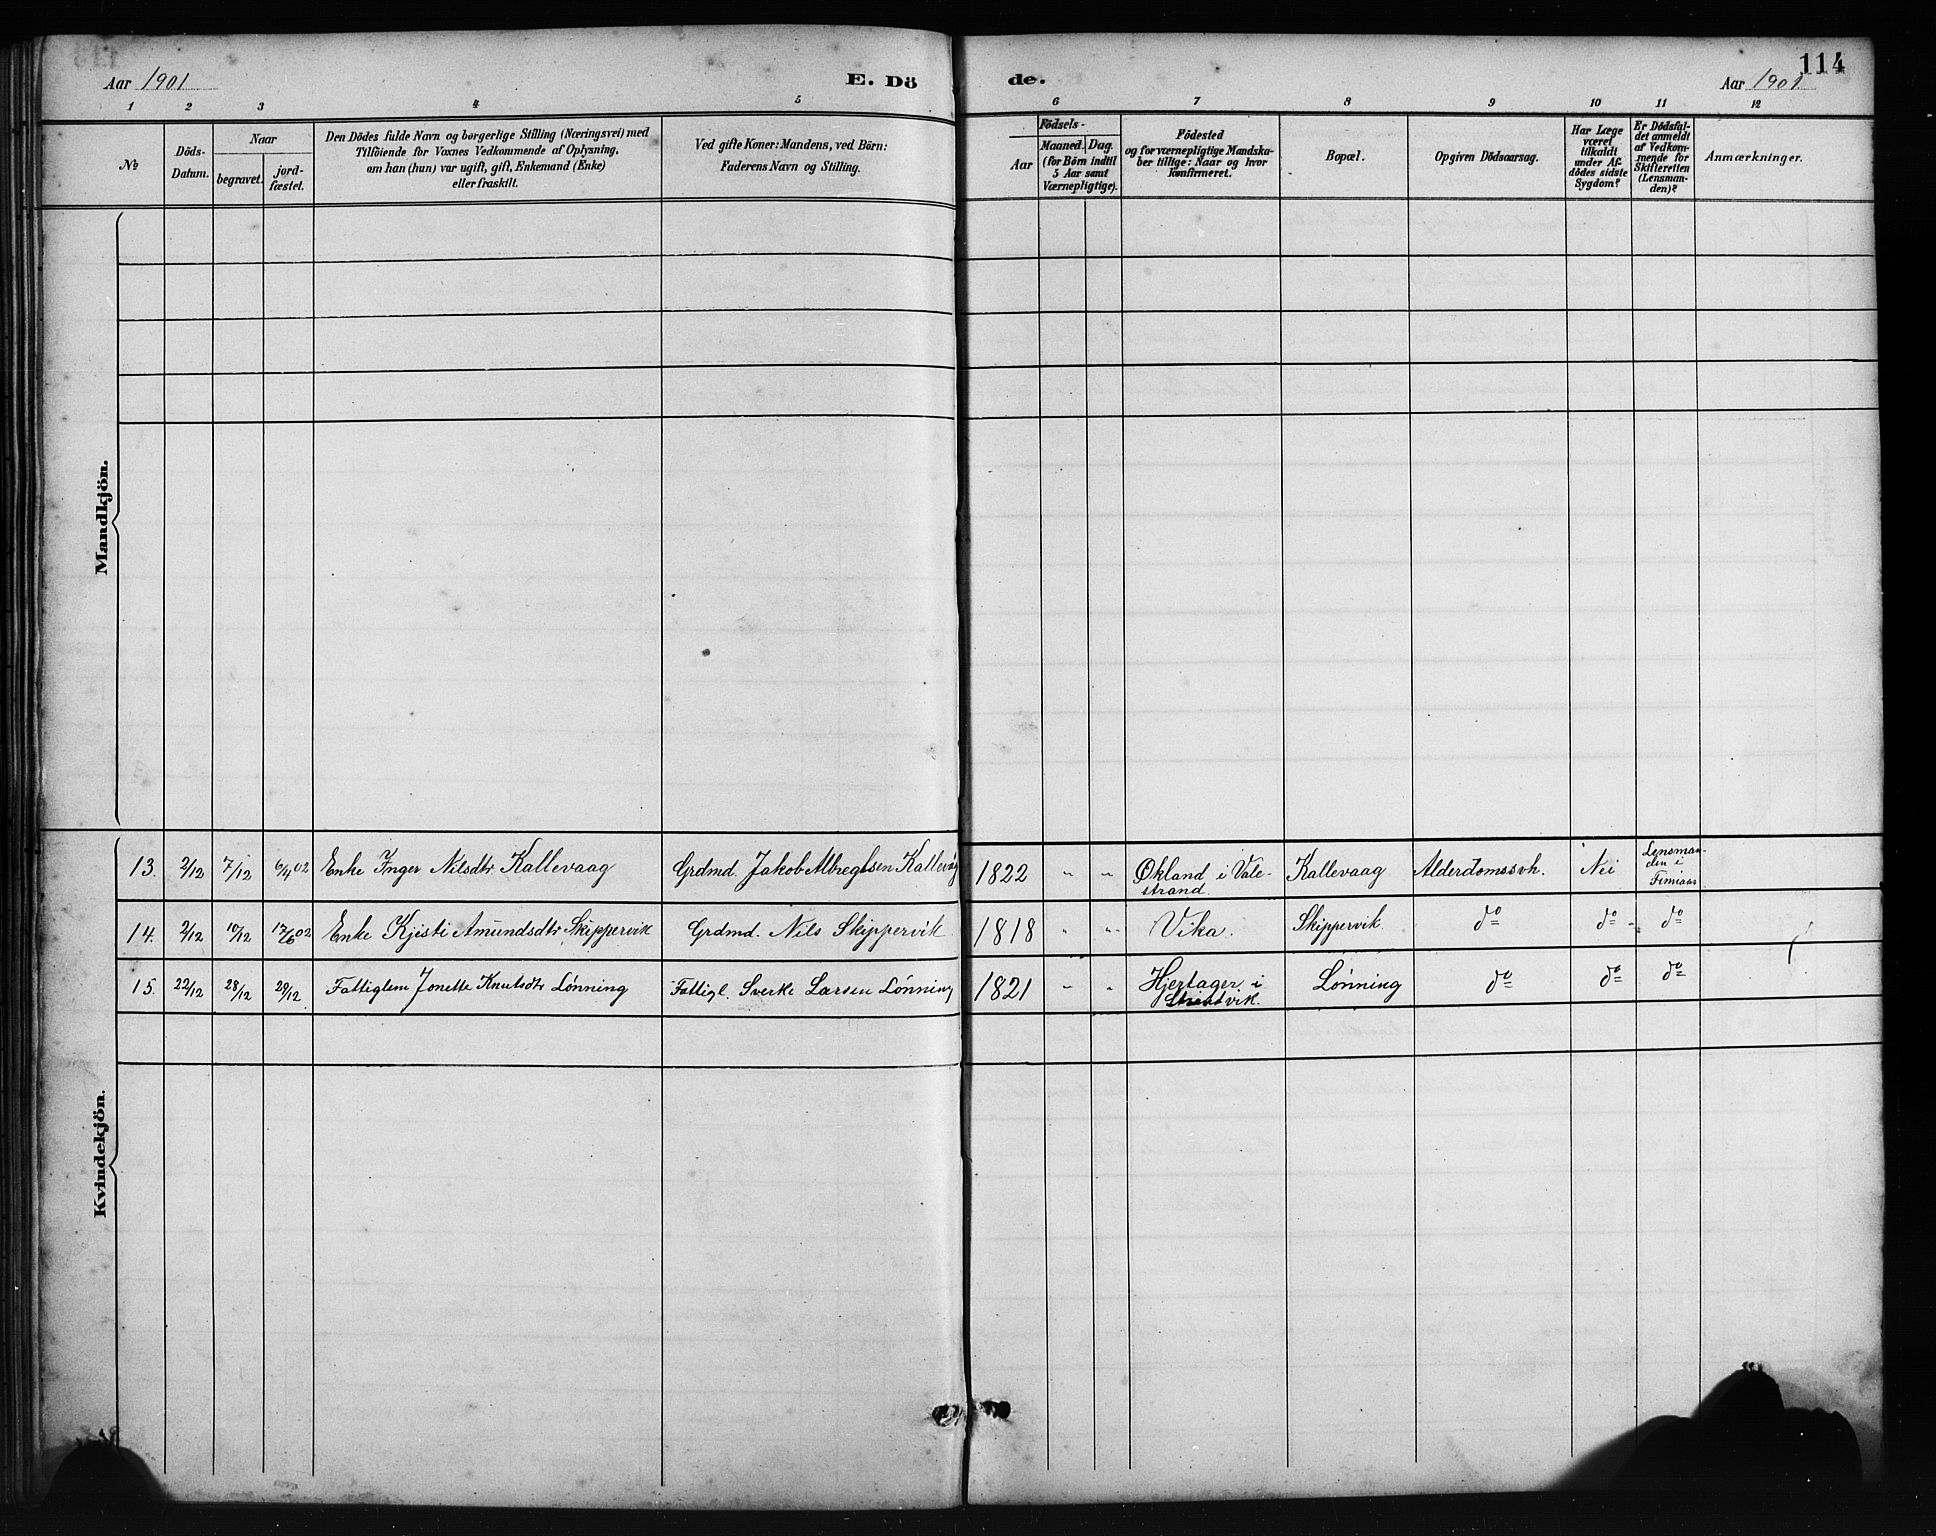 Aar 1901
E. Dö
de.
114
Aar 1901
1 2 3 4 5 6 7 8 9 10 11 12
No
Döds-
Datum.
Naar
begravet.
jord-
fæstet.
Den Dödes fulde Navn og borgerlige Stilling (Næringsvei) med
Tilföiende for Voxnes Vedkommende af Oplysning,
om han (hun) var ugift, gift, Enkemand (Enke)
eller fraskilt.
Ved gifte Koner: Mandens, ved Börn:
Faderens Navn og Stilling.
Födsels-
Aar
Maaned. Dag.
(for Börn indtil
5 Aar samt
Værnepligtige).
Födested
og for værnepligtige Mandska-
ber tillige: Naar og hvor
konfirmeret.
Bopæl.
Opgiven Dödsaarsag.
Har Læge
været
tilkaldt
under Af-
dödes sidste
Sygdom?
Er Dödsfal-
det anmeldt
af Vedkom-
mende for
Skifteretten
(Lensman-
den)?
Anmærkninger.
Mandkjön.
Kvindekjön.
13. 2/12 7/12 6/4 02 Enke Inger Nilsdtr Kallevaag Grdmd. Jakob Albregtsen Kallevåg 1822 " " Økland i Vale-
strand. Kallevaag Alderdomssvh. Nei Lensman-
den i
Finnaas
14. 2/12 10/12 17/6 02 Enke Kjisti Amundsdtr Skippervik Grdmd. Nils Skippervik 1818 " " Vika. Skippervik do do do
15. 22/12 28/12 29/12 Fattiglem Jonette Knutsdtr Lønning Fattigl. Sverke Larsen Lønning 1821 " " Hjertager i
Strandvik. Lønning do do do